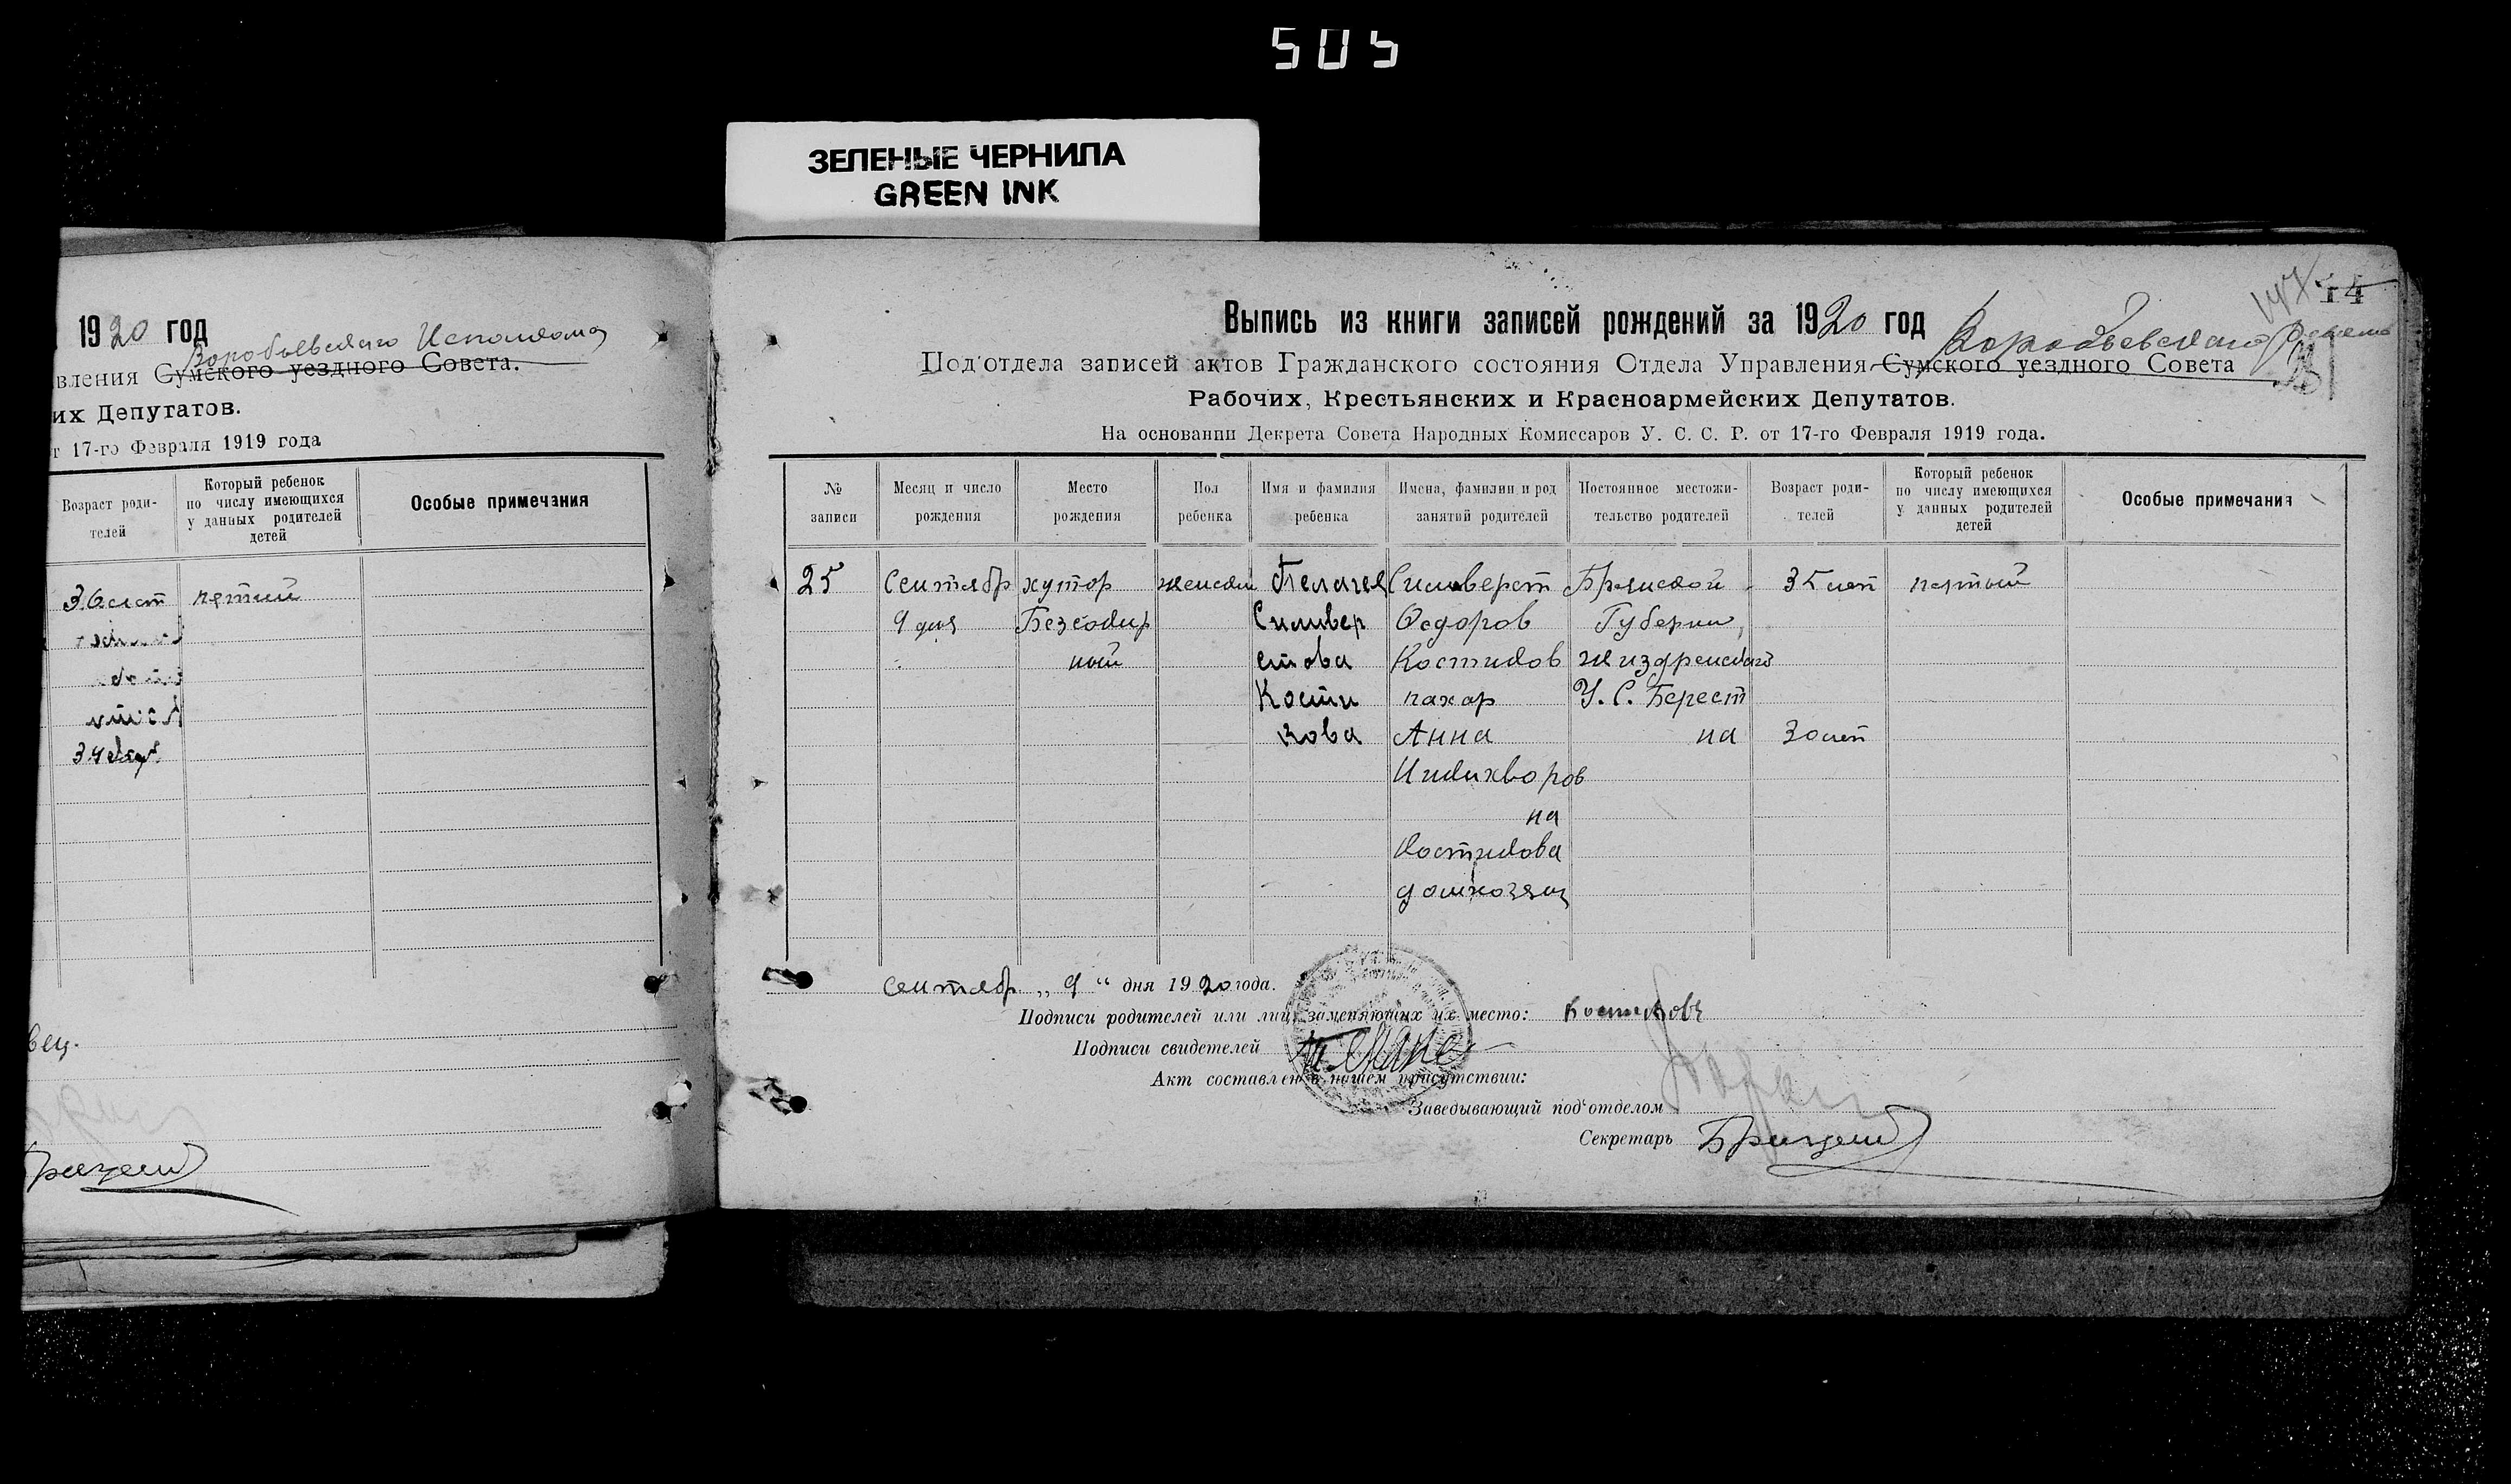 505
ЗЕЛЕНЫЕ ЧЕРНИЛА
GREEN INK
1920 год
Воробьевского Исполкома
вления Сумского уездного Совета.
их Депутатов.
т 17-го Февраля 1919 года
Возраст роди-
телей
Который ребенок
по числу имеющихся
у данных родителей
детей
Особые примечания
36 лет пятий
34
вец.
14
Выпись из книги записей рождений за 1920 год
Воробьевского
Под'отдела записей актов Гражданского состояния Отдела Управления Сумского уездного Совета
Рабочих, Крестьянских и Красноармейских Депутатов.
На основании Декрета Совета Народных Комиссаров У. С. С. Р. от 17-го Февраля 1919 года.
№
записи
Месяц и число
рождения
Место
рождения
Пол
ребенка
Имя и фамилия
ребенка
Имена, фамилии и род
занятий родителей
Постоянное местожи-
тельство родителей
Возраст роди-
телей
Который ребенок
по числу имеющихся
у данных родителей
детей
Особые примечания
25 Сентябр хутор женски Пелагея Силверст Брянской 35 лет пятый
9 дня Безсолир Силвер Федоров Губерни,
ный стова Костиков Жиздренскаго
Кости пахар У. С. Берест
кова Анна на 30 лет
Никихворов
на
Костикова
домхозяц
сентябр „ 9 “ дня 1920 года.
Подписи родителей или лиц, заменяющих их место: Костиковъ
Подписи свидетелей
Акт составлен в нашем присутствии:
Заведывающий под'отделом
Секретарь